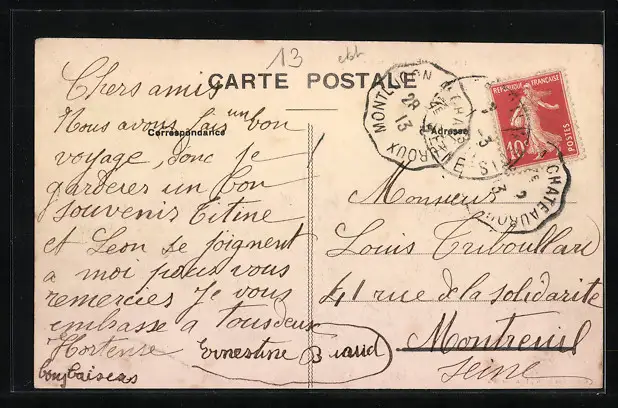 13
CARTE POSTALE
Correspondance
Adresse
Chers amis
Nous avons fais un bon
voyage, donc je
garderer un bon
souvenir Titine
et Leon se joignent
a moi pour vous
remercies Je vous
embrasse a tous deux
Hortense
Ernestine
Monsieur
Louis Triboullard
41 rue de la solidarite
Montreuil
Seine
REPUBLIQUE FRANÇAISE
10c
POSTES
MONTLUÇON
28
13
CHATEAUROUX